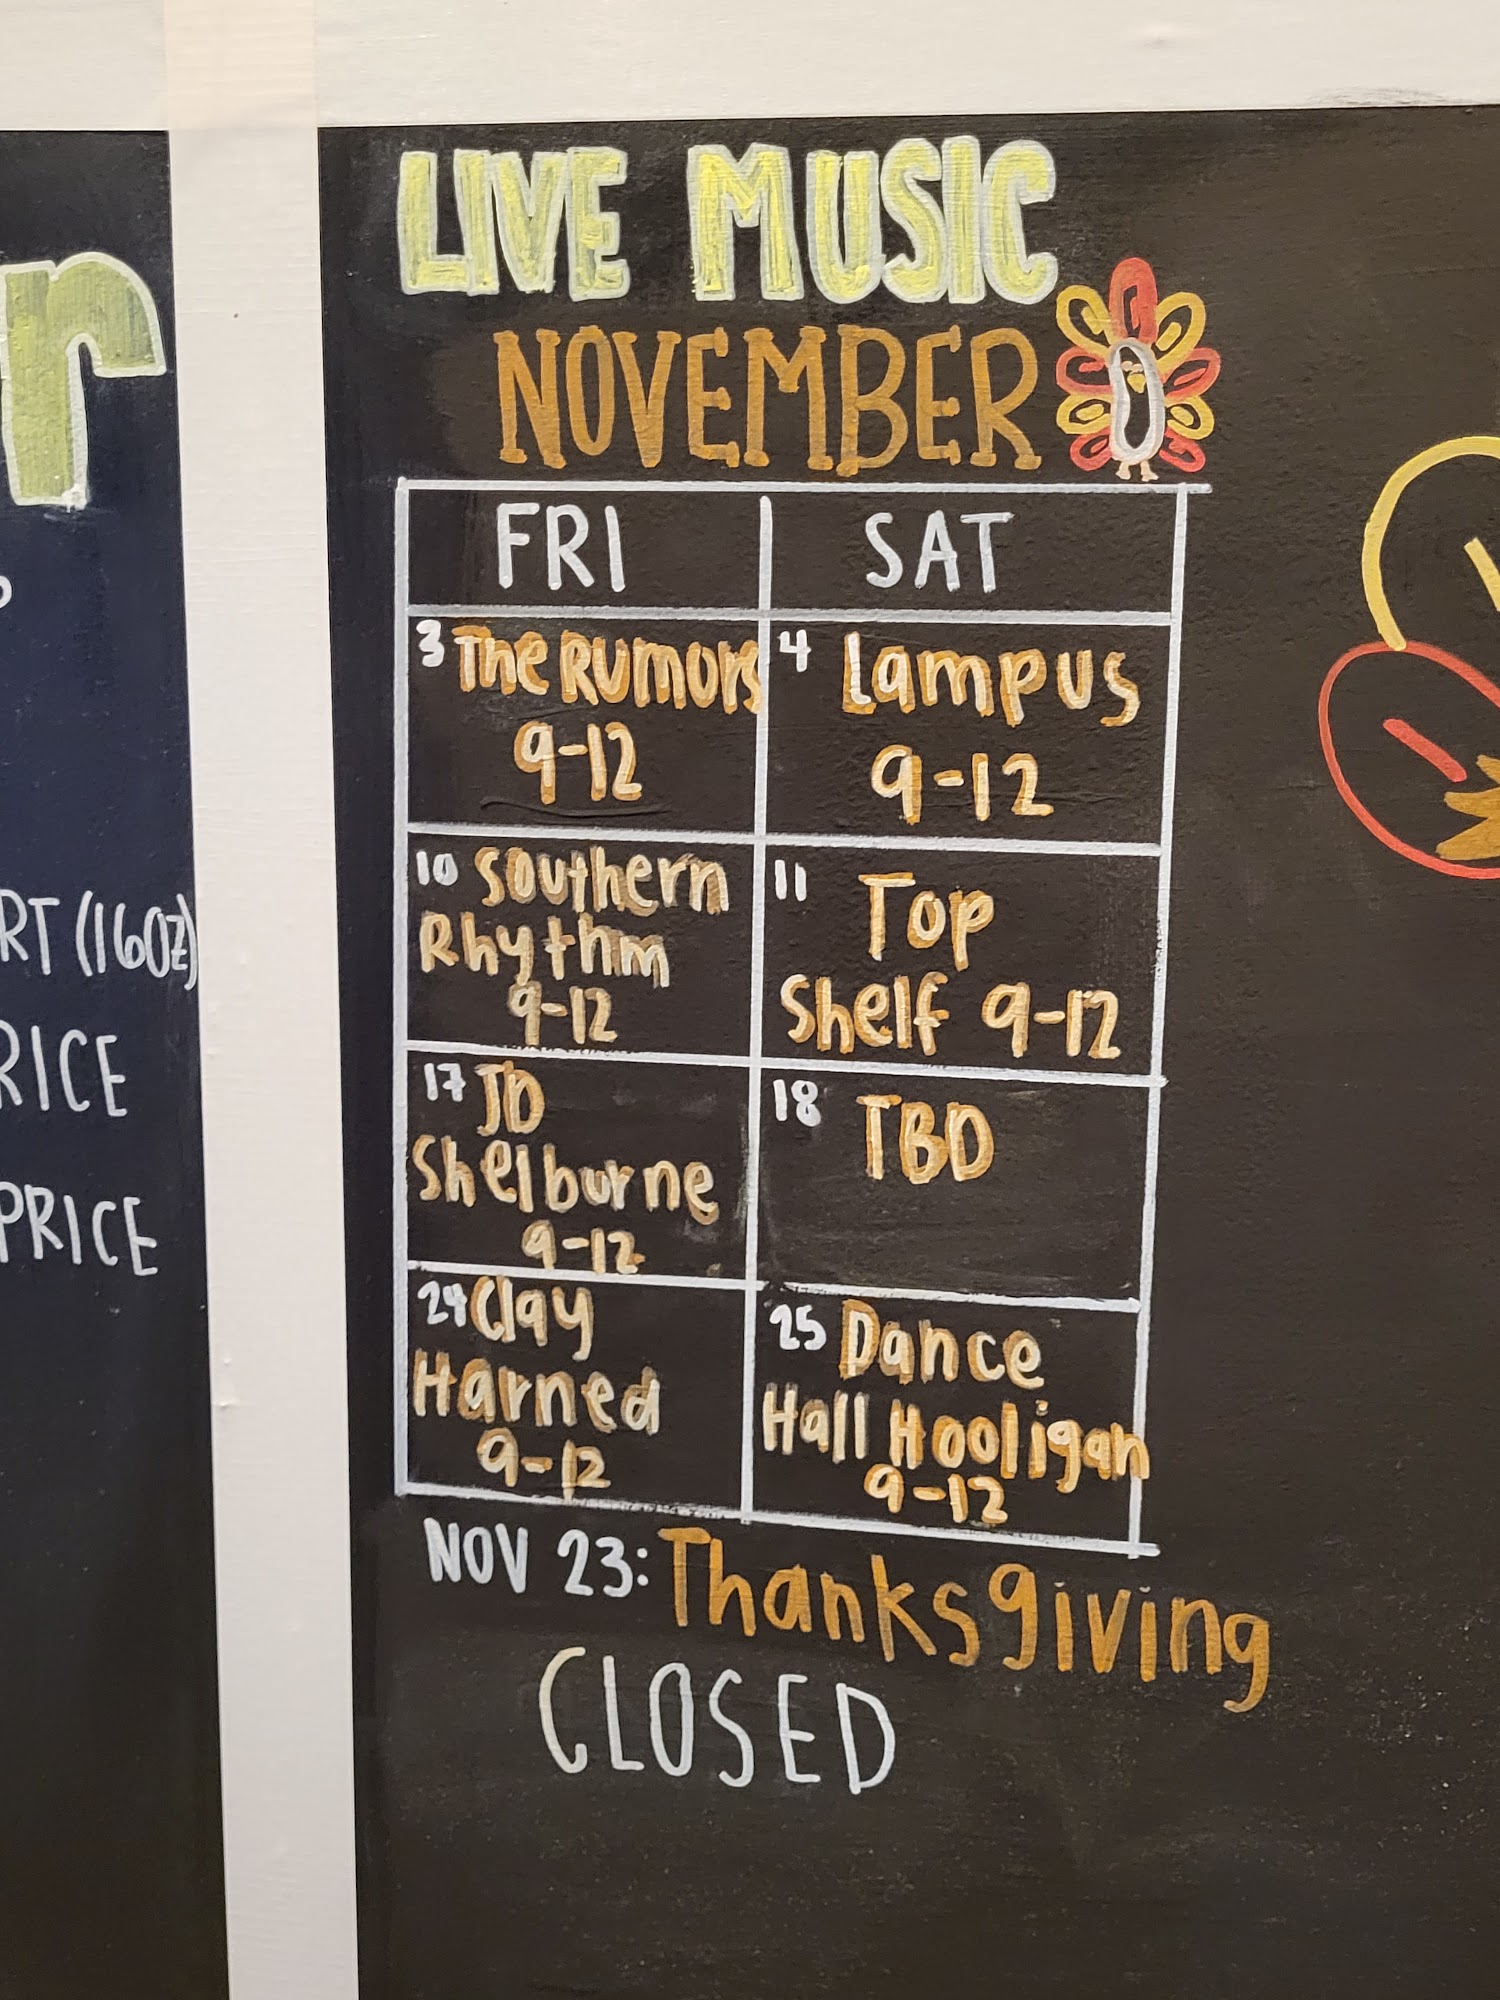 r
RT (16OZ)
RICE
PRICE
LIVE MUSIC
NOVEMBER
FRI
SAT
3 The Rumors
9-12
4 Lampus
9-12
10 Southern
Rhythm
9-12
11 Top
Shelf 9-12
17 JD
Shelburne
9-12
18 TBD
24 Clay
Harned
9-12
25 Dance
Hall Hooligan
9-12
NOV 23: Thanksgiving
CLOSED